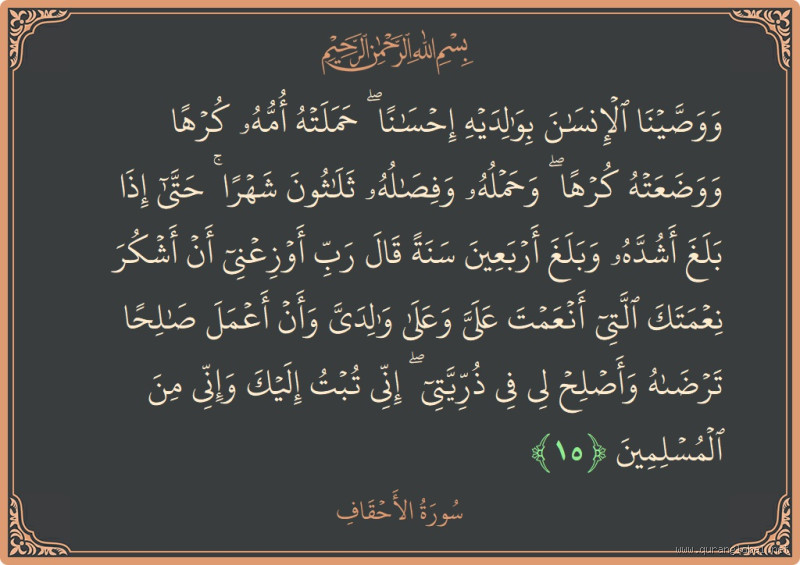 بِسْمِ اللهِ الرَّحْمٰنِ الرَّحِيْمِ
وَوَصَّيۡنَا ٱلۡإِنسَٰنَ بِوَٰلِدَيۡهِ إِحۡسَٰنًاۖ حَمَلَتۡهُ أُمُّهُۥ كُرۡهًا
وَوَضَعَتۡهُ كُرۡهًاۖ وَحَمۡلُهُۥ وَفِصَٰلُهُۥ ثَلَٰثُونَ شَهۡرًاۚ حَتَّىٰٓ إِذَا
بَلَغَ أَشُدَّهُۥ وَبَلَغَ أَرۡبَعِينَ سَنَةً قَالَ رَبِّ أَوۡزِعۡنِىٓ أَنۡ أَشۡكُرَ
نِعۡمَتَكَ ٱلَّتِىٓ أَنۡعَمۡتَ عَلَىَّ وَعَلَىٰ وَٰلِدَىَّ وَأَنۡ أَعۡمَلَ صَٰلِحًا
تَرۡضَىٰهُ وَأَصۡلِحۡ لِى فِى ذُرِّيَّتِىٓۖ إِنِّى تُبۡتُ إِلَيۡكَ وَإِنِّى مِنَ
ٱلۡمُسۡلِمِينَ ﴿١٥﴾
سُورَةُ الأَحۡقَافِ